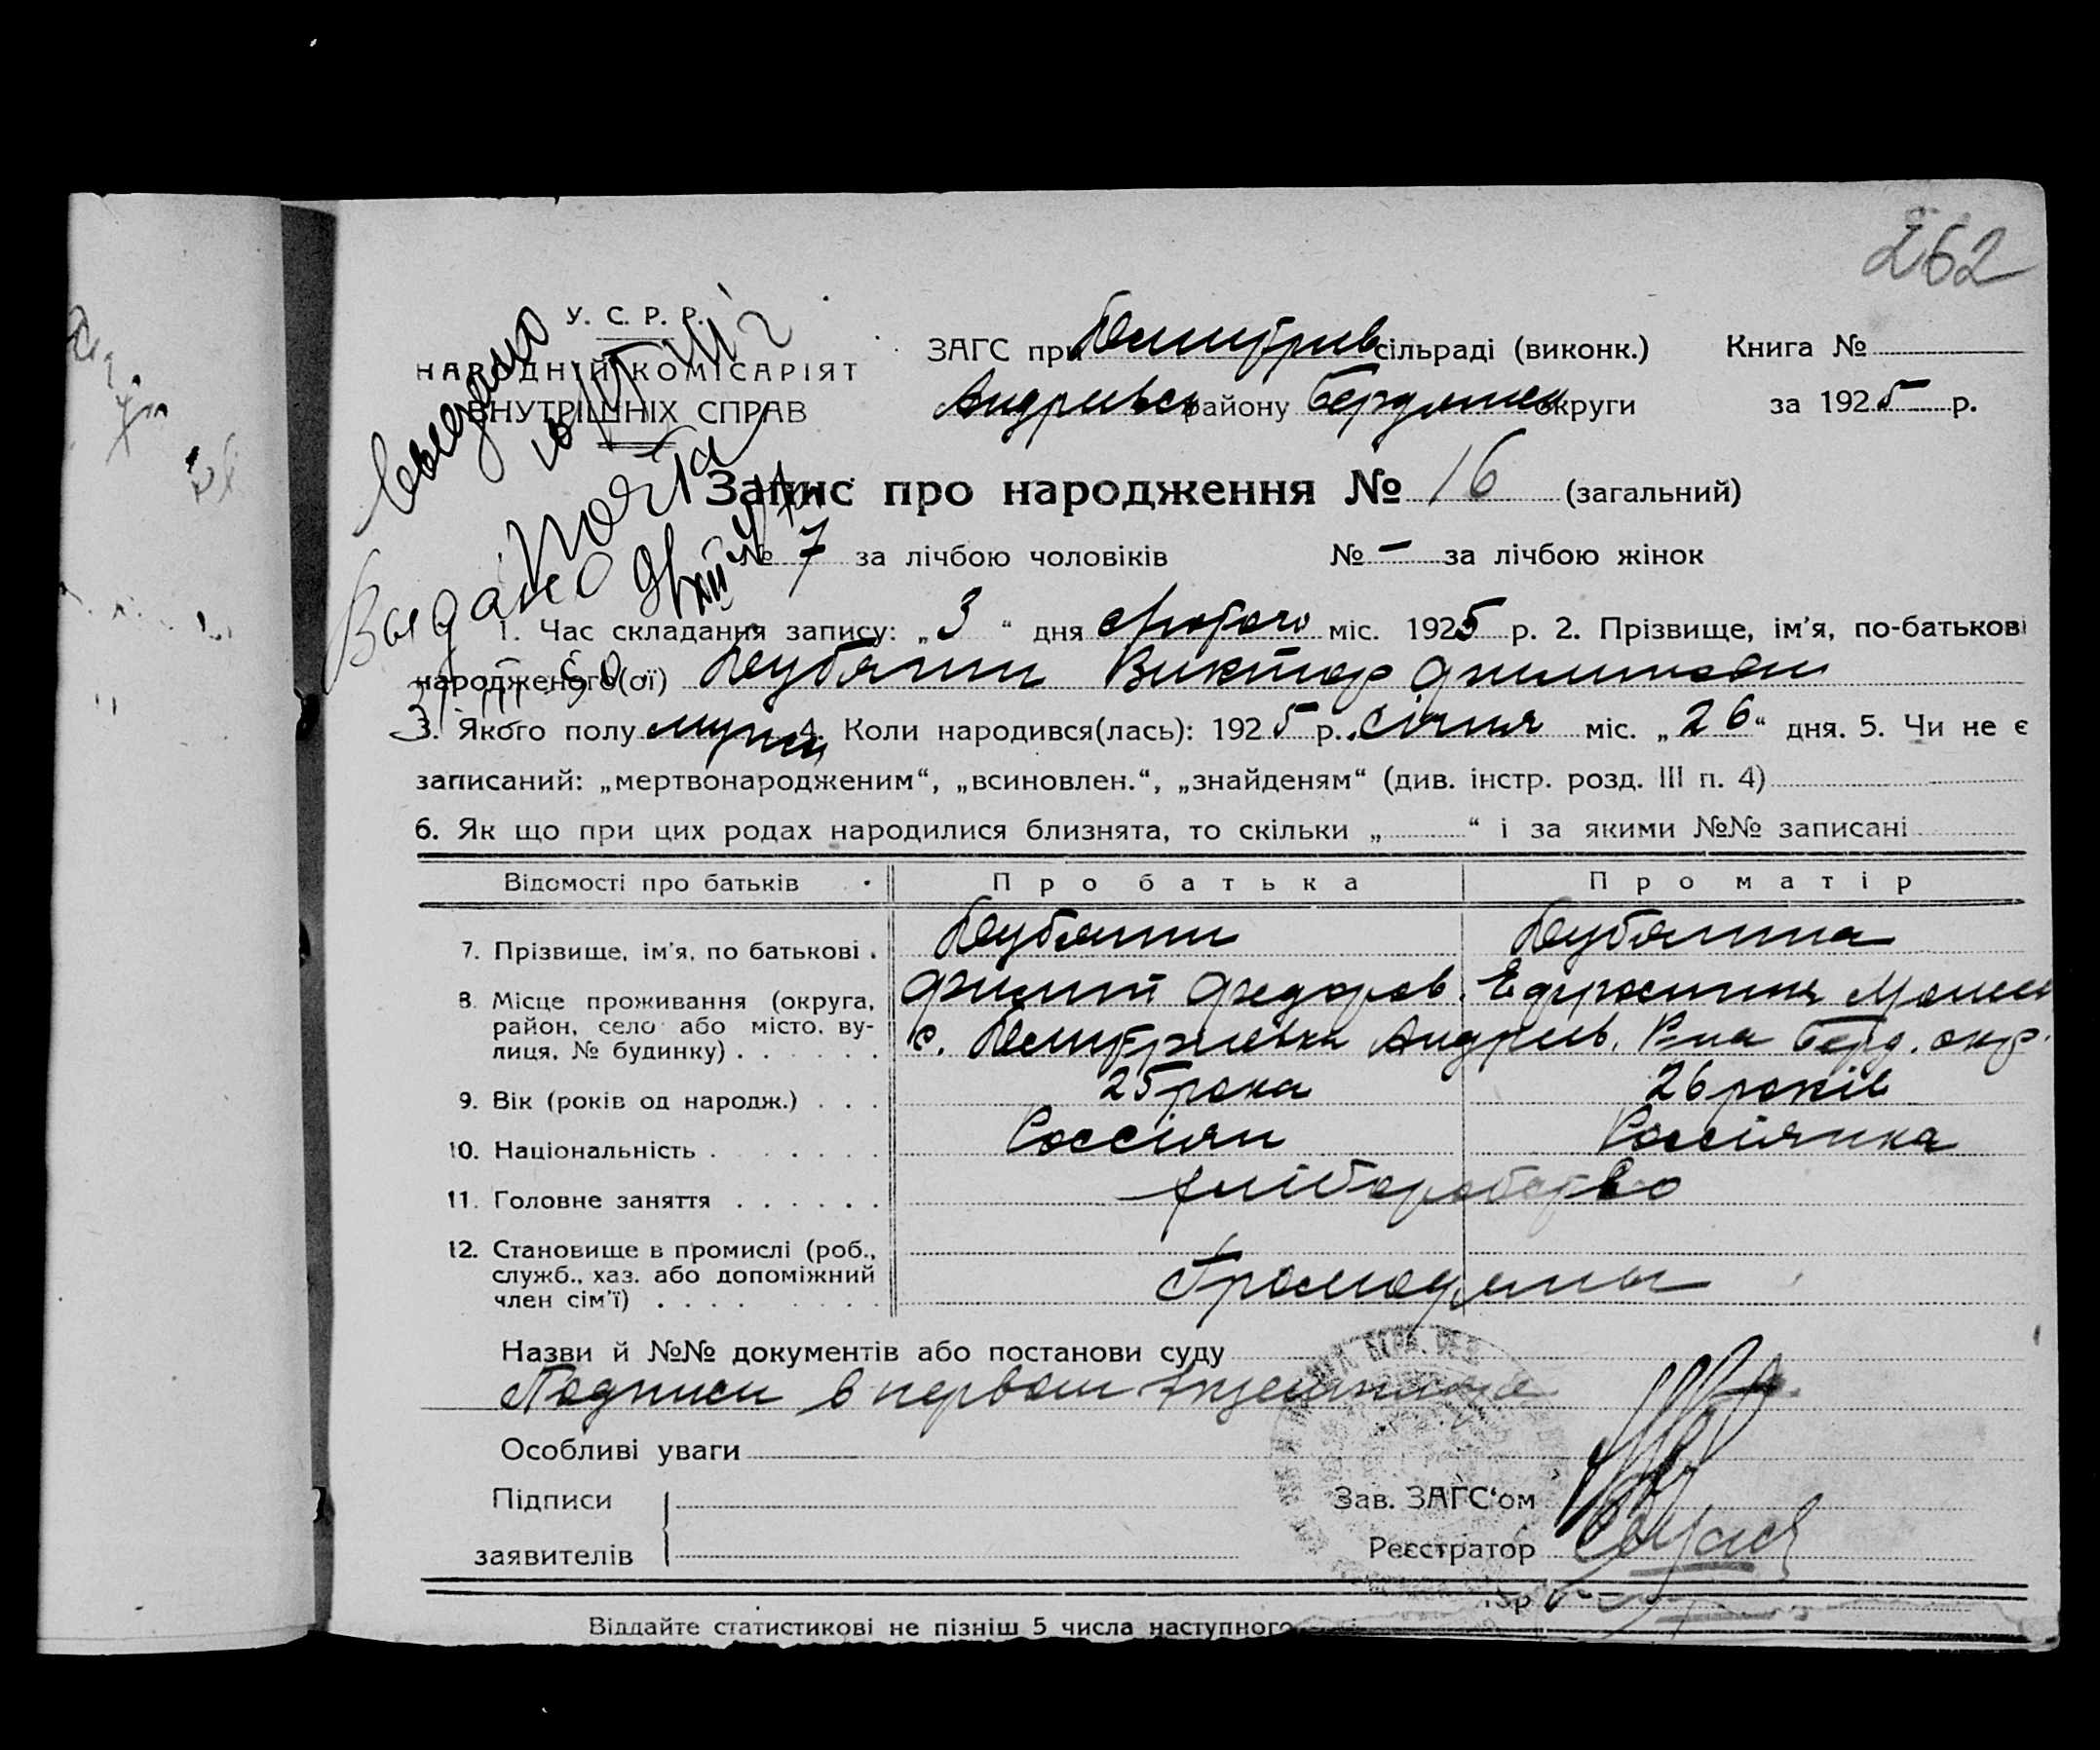 262
У. С. Р. Р.
НАРОДНІЙ КОМІСАРІЯТ
ВНУТРІШНІХ СПРАВ
ЗАГС при Дмитрив сільраді (виконк.) Книга №
Андриевск району Бердянск округи за 1925 р.
Запис про народження № 16 (загальний)
№ 7 за лічбою чоловіків № – за лічбою жінок
Выдано
1. Час складання запису: „3“ дня Лютого міс. 1925 р. 2. Прізвище, ім'я, по-батькові
народженого(ої) Деубянин Виктор Филипович
3. Якого полу 4. Коли народився(лась): 1925 р. січня міс. „26“ дня. 5. Чи не є
записаний: „мертвонародженим“, „всиновлен.“, „знайденям“ (див. інстр. розд. III п. 4)
6. Як що при цих родах народилися близнята, то скільки „ “ і за якими №№ записані
Відомості про батьків Про батька Про матір
7. Прізвище, ім'я, по батькові .
8. Місце проживання (округа,
район, село або місто, ву-
лиця, № будинку) . . . . . .
Филип Федоров. Ефросиния
с. Дмитриевка Андриев. Р-на Берд. окр.
9. Вік (років од народж.) . . . 25 рока 26 років
10. Національність . . . . . . . Россіян Россіянка
11. Головне заняття . . . . . . хліборобство
12. Становище в промислі (роб.,
служб., хаз. або допоміжний
член сім'ї) . . . . . . . .
Громадяны
Назви й №№ документів або постанови суду
Подписи в первом экземпляре
Особливі уваги
Підписи
заявителів
Зав. ЗАГС'ом
Реєстратор
Віддайте статистикові не пізніш 5 числа наступного